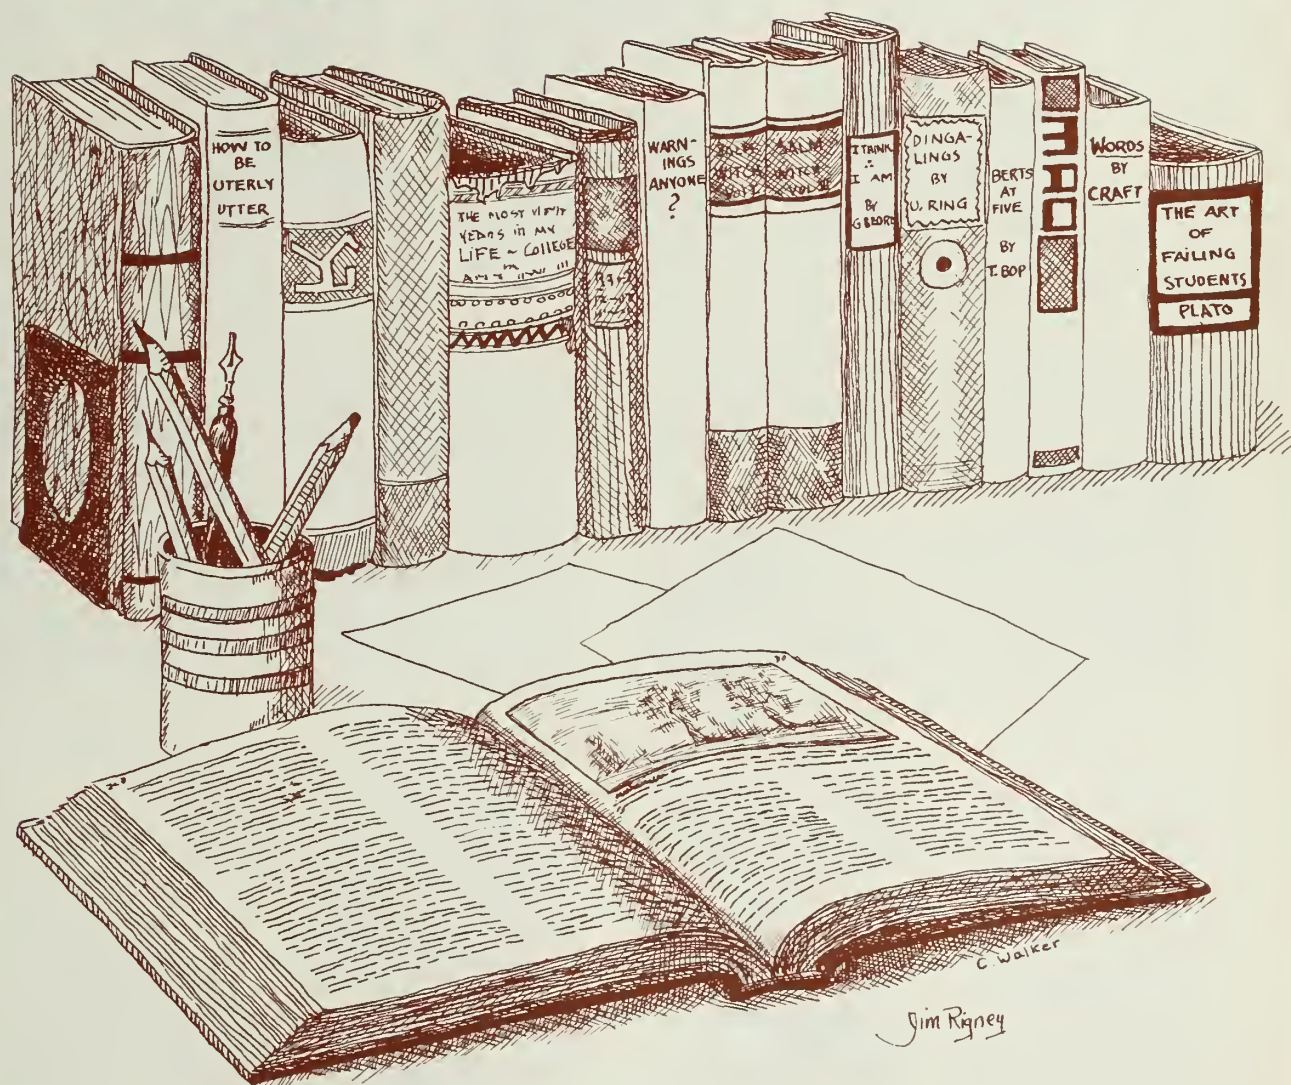 HOW TO
BE
UTERLY
UTTER
THE MOST
YEARS IN MY
LIFE ~ COLLEGE
WARN-
INGS
ANYONE
?
WITCH
VOL II
I THINK
∴
I AM
BY
DINGA-
LINGS
BY
U. RING
BERTS
AT
FIVE
BY
T. BOP
WORDS
BY
CRAFT
THE ART
OF
FAILING
STUDENTS
PLATO
C. Walker
Jim Rigney